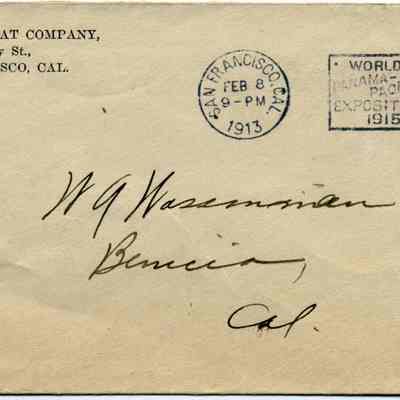 AT COMPANY,
St.,
SCO, CAL.
SAN FRANCISCO, CAL.
FEB 8
9-PM
1913
WORLD
PANAMA-
PAC
EXPOSIT
1915
W A Wassmman
Benicia,
Cal.